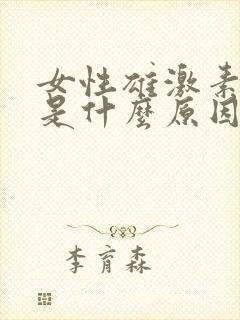 女性雄激素
是什麼原因
李育森